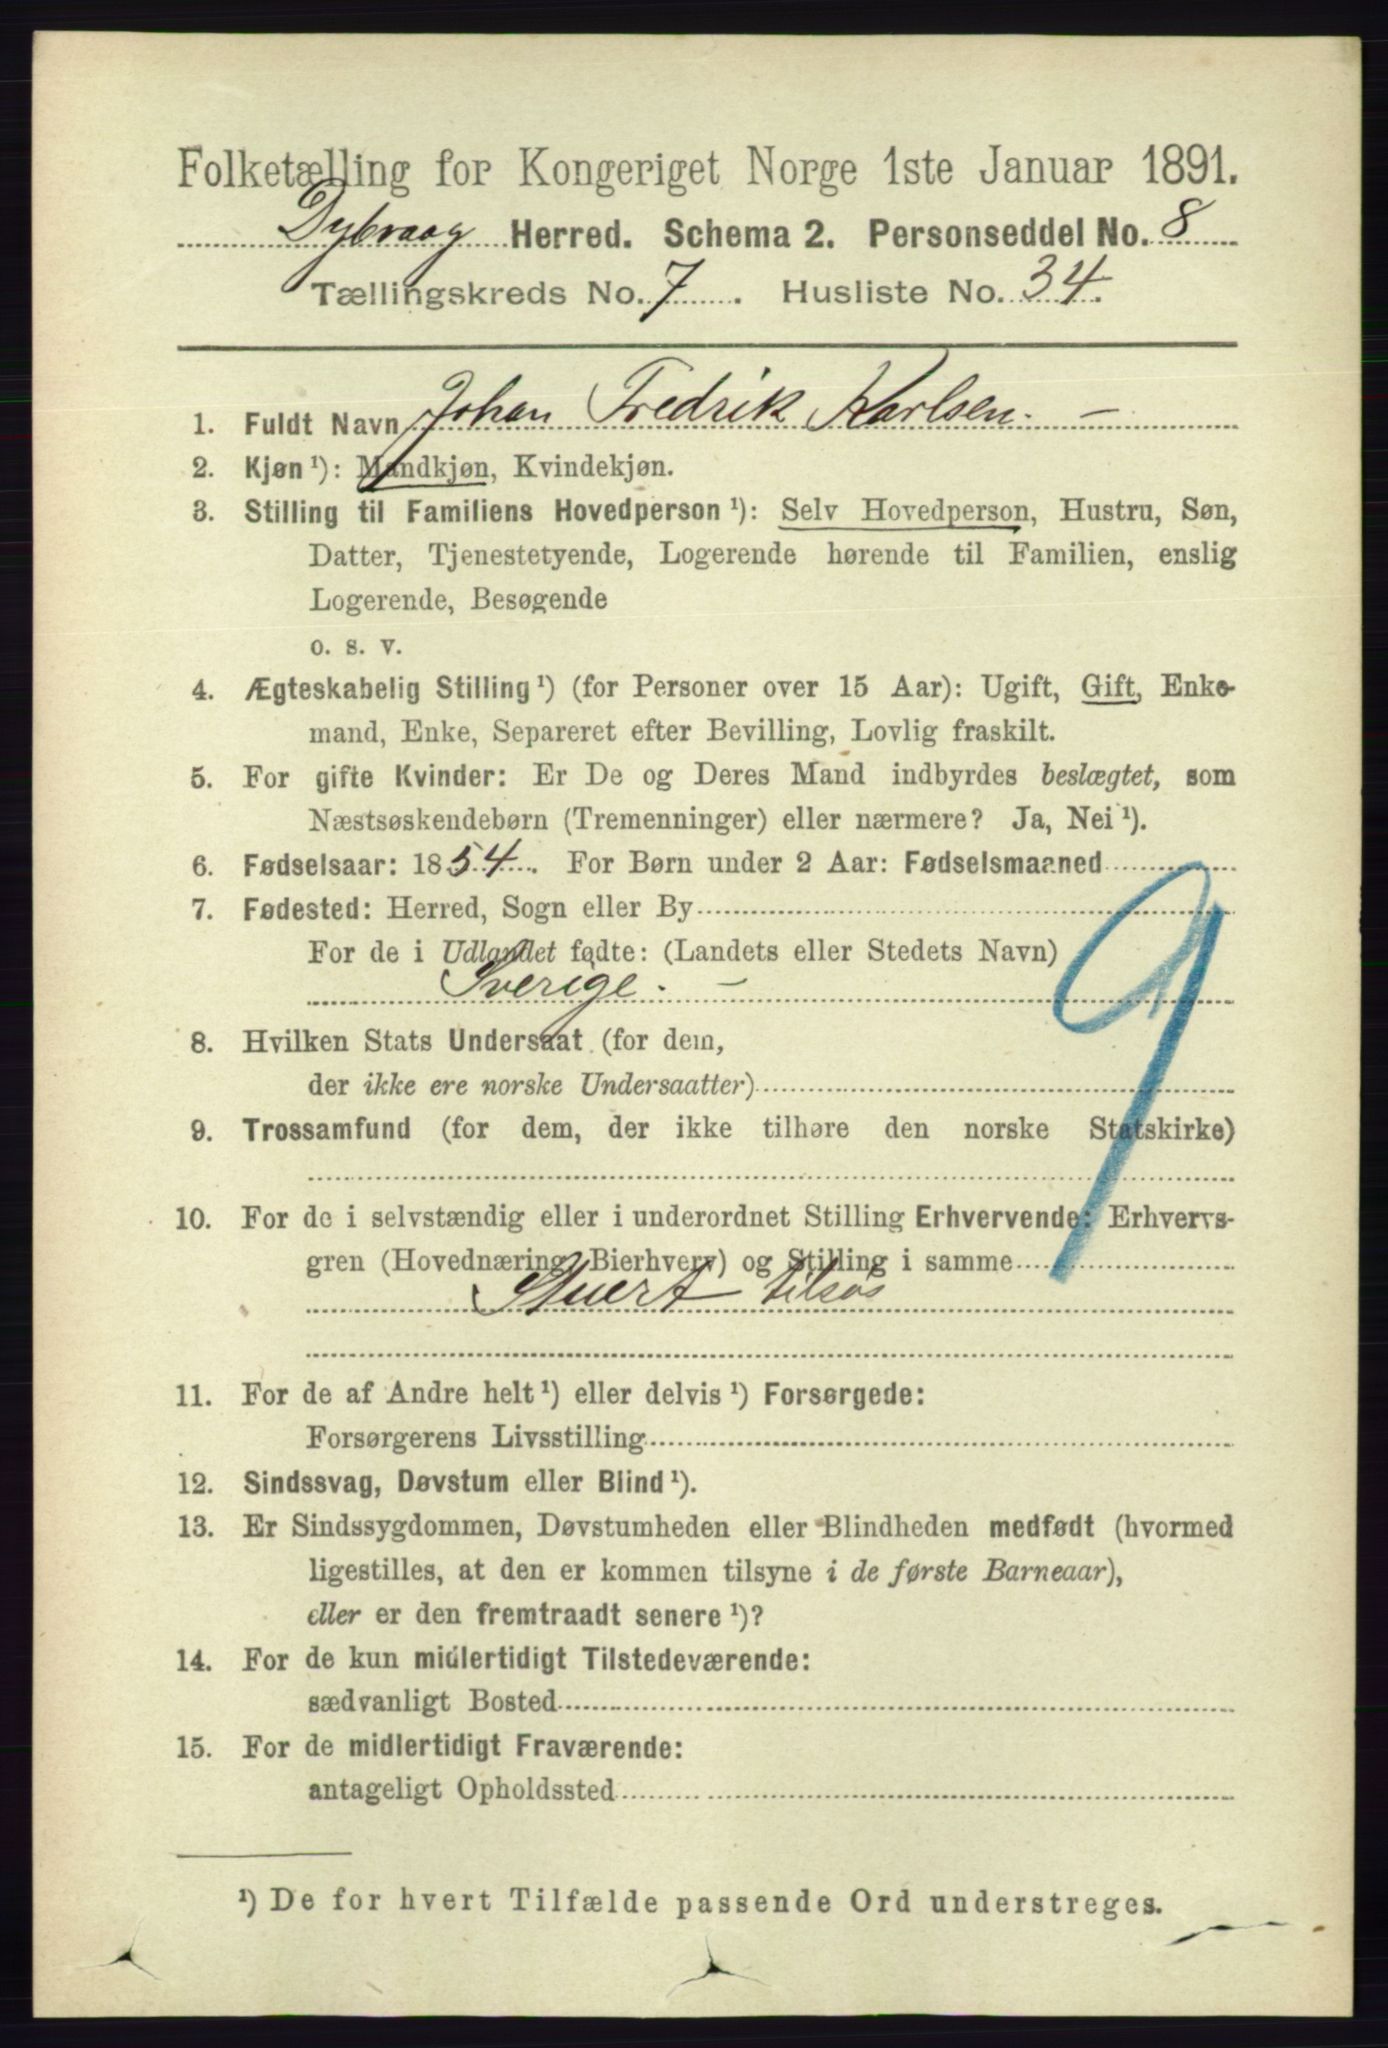 Folketælling for Kongeriget Norge 1ste Januar 1891.
Dybvaag Herred. Schema 2. Personseddel No. 8
Tællingskreds No. 7. Husliste No. 34.
1. Fuldt Navn Johan Fredrik Karlsen. —
2. Kjøn¹): Mandkjøn, Kvindekjøn.
3. Stilling til Familiens Hovedperson¹): Selv Hovedperson, Hustru, Søn,
Datter, Tjenestetyende, Logerende hørende til Familien, enslig
Logerende, Besøgende
o. s. v.
4. Ægteskabelig Stilling¹) (for Personer over 15 Aar): Ugift, Gift, Enke-
mand, Enke, Separeret efter Bevilling, Lovlig fraskilt.
5. For gifte Kvinder: Er De og Deres Mand indbyrdes beslægtet, som
Næstsøskendebørn (Tremenninger) eller nærmere? Ja, Nei¹).
6. Fødselsaar: 1854. For Børn under 2 Aar: Fødselsmaaned
7. Fødested: Herred, Sogn eller By
For de i Udlandet fødte: (Landets eller Stedets Navn)
Sverige. —
8. Hvilken Stats Undersaat (for dem,
der ikke ere norske Undersaatter)
9. Trossamfund (for dem, der ikke tilhøre den norske Statskirke)
9
10. For de i selvstændig eller i underordnet Stilling Erhvervende: Erhvervs-
gren (Hovednæring, Bierhverv) og Stilling i samme
Stuert tilsøs
11. For de af Andre helt¹) eller delvis¹) Forsørgede:
Forsørgerens Livsstilling
12. Sindssvag, Døvstum eller Blind¹).
13. Er Sindssygdommen, Døvstumheden eller Blindheden medfødt (hvormed
ligestilles, at den er kommen tilsyne i de første Barneaar),
eller er den fremtraadt senere¹)?
14. For de kun midlertidigt Tilstedeværende:
sædvanligt Bosted
15. For de midlertidigt Fraværende:
antageligt Opholdssted
¹) De for hvert Tilfælde passende Ord understreges.